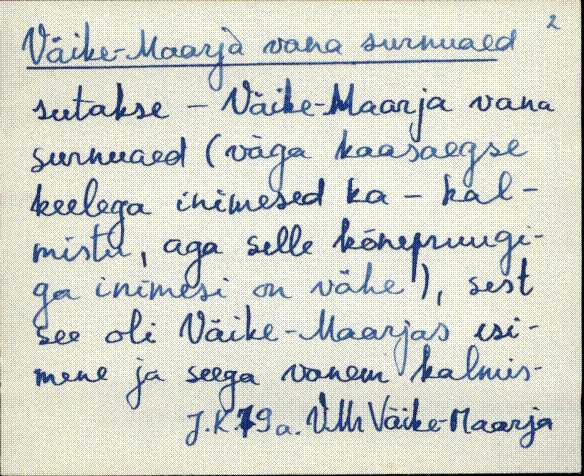 2
Väike-Maarja vana surnuaed
sutakse - Väike-Maarja vana
surnuaed (väga kaasaegse
keelega inimesed ka - kal-
mistu, aga selle kõnepruugi-
ga inimesi on vähe), sest
see oli Väike-Maarjas esi-
mene ja seega vanem kalmis-
J.K. 79 a. VMr Väike-Maarja